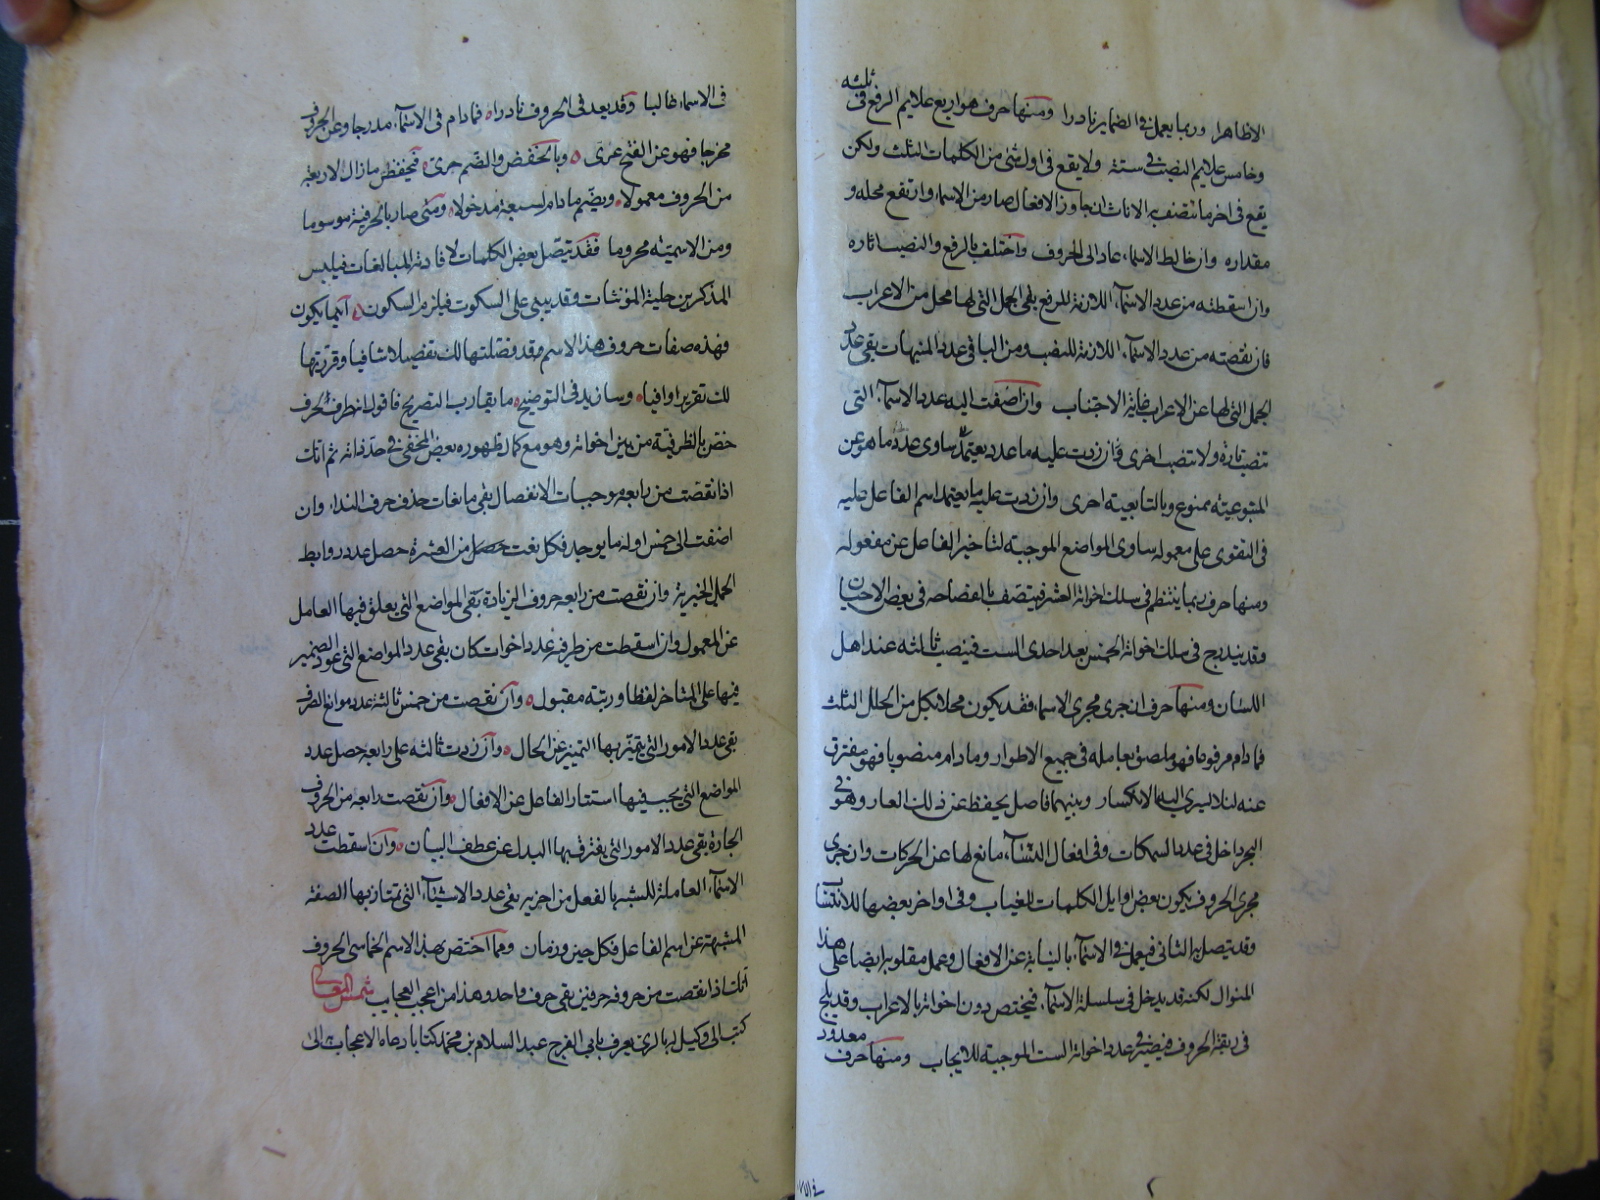 الاظاهرا وربما يعمل فى الضماير نادرا ومنها حرف هو اربع علايم الرفع فى ثلثه
وخامس علايم النصب فى ستة ولا يقع فى اول شئ من الكلمات الثلث ولكن
يقع فى اخر ما تتصف به الاناث ان جاوز الافعال صار من الاسماء وارتفع محله و
مقداره وان خالط الاسماء عاد الى الحروف واختلف بالرفع والنصب اثاره
وان اسقطته من عدد الاسماء اللازمة للرفع بقى الجمل التى لها محل من الاعراب
فان نقصته من عدد الاسماء اللازمة للنصب ومن الباقى عدد المنبهات بقى عدد
الجمل التى لها عن الاعراب غاية الاجتناب وان اضفت اليه عدد الاسماء التى
تنصب تارة ولا تنصب اخرى فان زدت عليه ما عدد يعتمد ساوى عدد ما هو عن
المتبوعية ممنوع وبالتابعية احرى وان زدت عليه ما يعتمد اسم الفاعل عليه
فى التقوى على معموله ساوى المواضع الموجبة لتاخير الفاعل عن مفعوله
ومنها حرف ربما ينتظم فى سلك اخواته العشر فيتصف بالفصاحه فى بعض الاحيان
وقد يندرج فى سلك اخواته الخمس بعد احدى الست فينصب ثالثه عند اهل
اللسان ومنها حرف ان جرى مجرى الاسماء فقد يكون محلا لكل من الحلل الثلث
فما دام مرفوعا فهو ملصق بعامله فى جميع الاطوار وما دام منصوبا فهو مفترق
عنه لئلا يسرى اليه الانكسار وبينهما فاصل يحفظ عن ذلك العار وهو فى
البحر داخل فى عدد السمكات وفى افعال النساء مانع لها عن الحركات وان جرى
مجرى الحروف يكون بعض اوايل الكلمات للغياب وفى اواخر بعضها للانتساب
وقد يتصل به الثانى فيعمل فى الاسماء بالنيابة عن الافعال وعمل مقلوبه ايضا على هذا
المنوال لكنه قد يدخل فى سلسلة الاسماء فيختص دون اخواته بالاعراب وقد يلج
فى ربقة الحروف فيصير فى عدد اخواته الست الموجبة للايجاب معدود ومنها حرف
فى الاسماء غالبا وقد يعد فى الحروف نادرا فما دام فى الاسماء مدرجا وعن الحروف
مخرجا فهو عن الفتح عرى وبالخفض والضم حرى فيخفض ما زال لاربعة
من الحروف معمولا ويضم ما دام لسبعة مدخولا ومتى صار بالحرفية موسوما
ومن الاسمية محروما فقد يتصل ببعض الكلمات لافادته المبالغات فيلبس
المذكرين حلية المؤنثات وقد يبنى على السكوت فيلزم السكون اينما يكون
فهذه صفات حروف هذا الاسم وقد فصلتها لك تفصيلا شافيا وقررتها
لك تقريرا وافيا وسازيد فى التوضيح ما يقارب التصريح فاقول ان طرفه حرف
خص بالظرفية من بين اخواته وهو مع كمال ظهوره بعض المخفى فى حد ذاته ثم انك
اذا نقصت من رابعه موجبات الانفصال بقى مانعات حذف حرف النداء وان
اضفت الى خمس اوله ما يوجد فى كل نعت حصل من العشرة حصل عدد روابط
الجمل الخبرية وان نقصت من رابعه حروف الزيادة بقى المواضع التى يعلق فيها العامل
عن المعمول وان اسقطت من طرفه عدد اخوات كان بقى عدد المواضع التى عود الضمير
فيها على المتاخر لفظا ورتبة مقبول وان نقصت من خمس ثالثه عدد موانع الصرف
بقى عدد الامور التى يتميز بها التمييز عن الحال وان زدت ثالثه على رابعه حصل عدد
المواضع التى يجب فيها استتار الفاعل عن الافعال وان نقصت رابعه من الحروف
الجارة بقى عدد الامور التى يفترق بها البدل عن عطف البيان وان اسقطت عدد
الاسماء العاملة للشبه بالفعل من اخريه بقى عدد الاشياء التى تمتاز بها الصفة
المشبهة عن اسم الفاعل فى كل حين وزمان ومما اختص بهذا الاسم الخماسى الحروف
انك اذا نقصت من حروفه حرفين بقى حرف واحد وهذا من اعجب العجايب شمس المعالى
كتب الى وكيل له بالرى يعرف بابى الفرج عبد السلام بن محمد كتابا دعاه الاعجاب الى